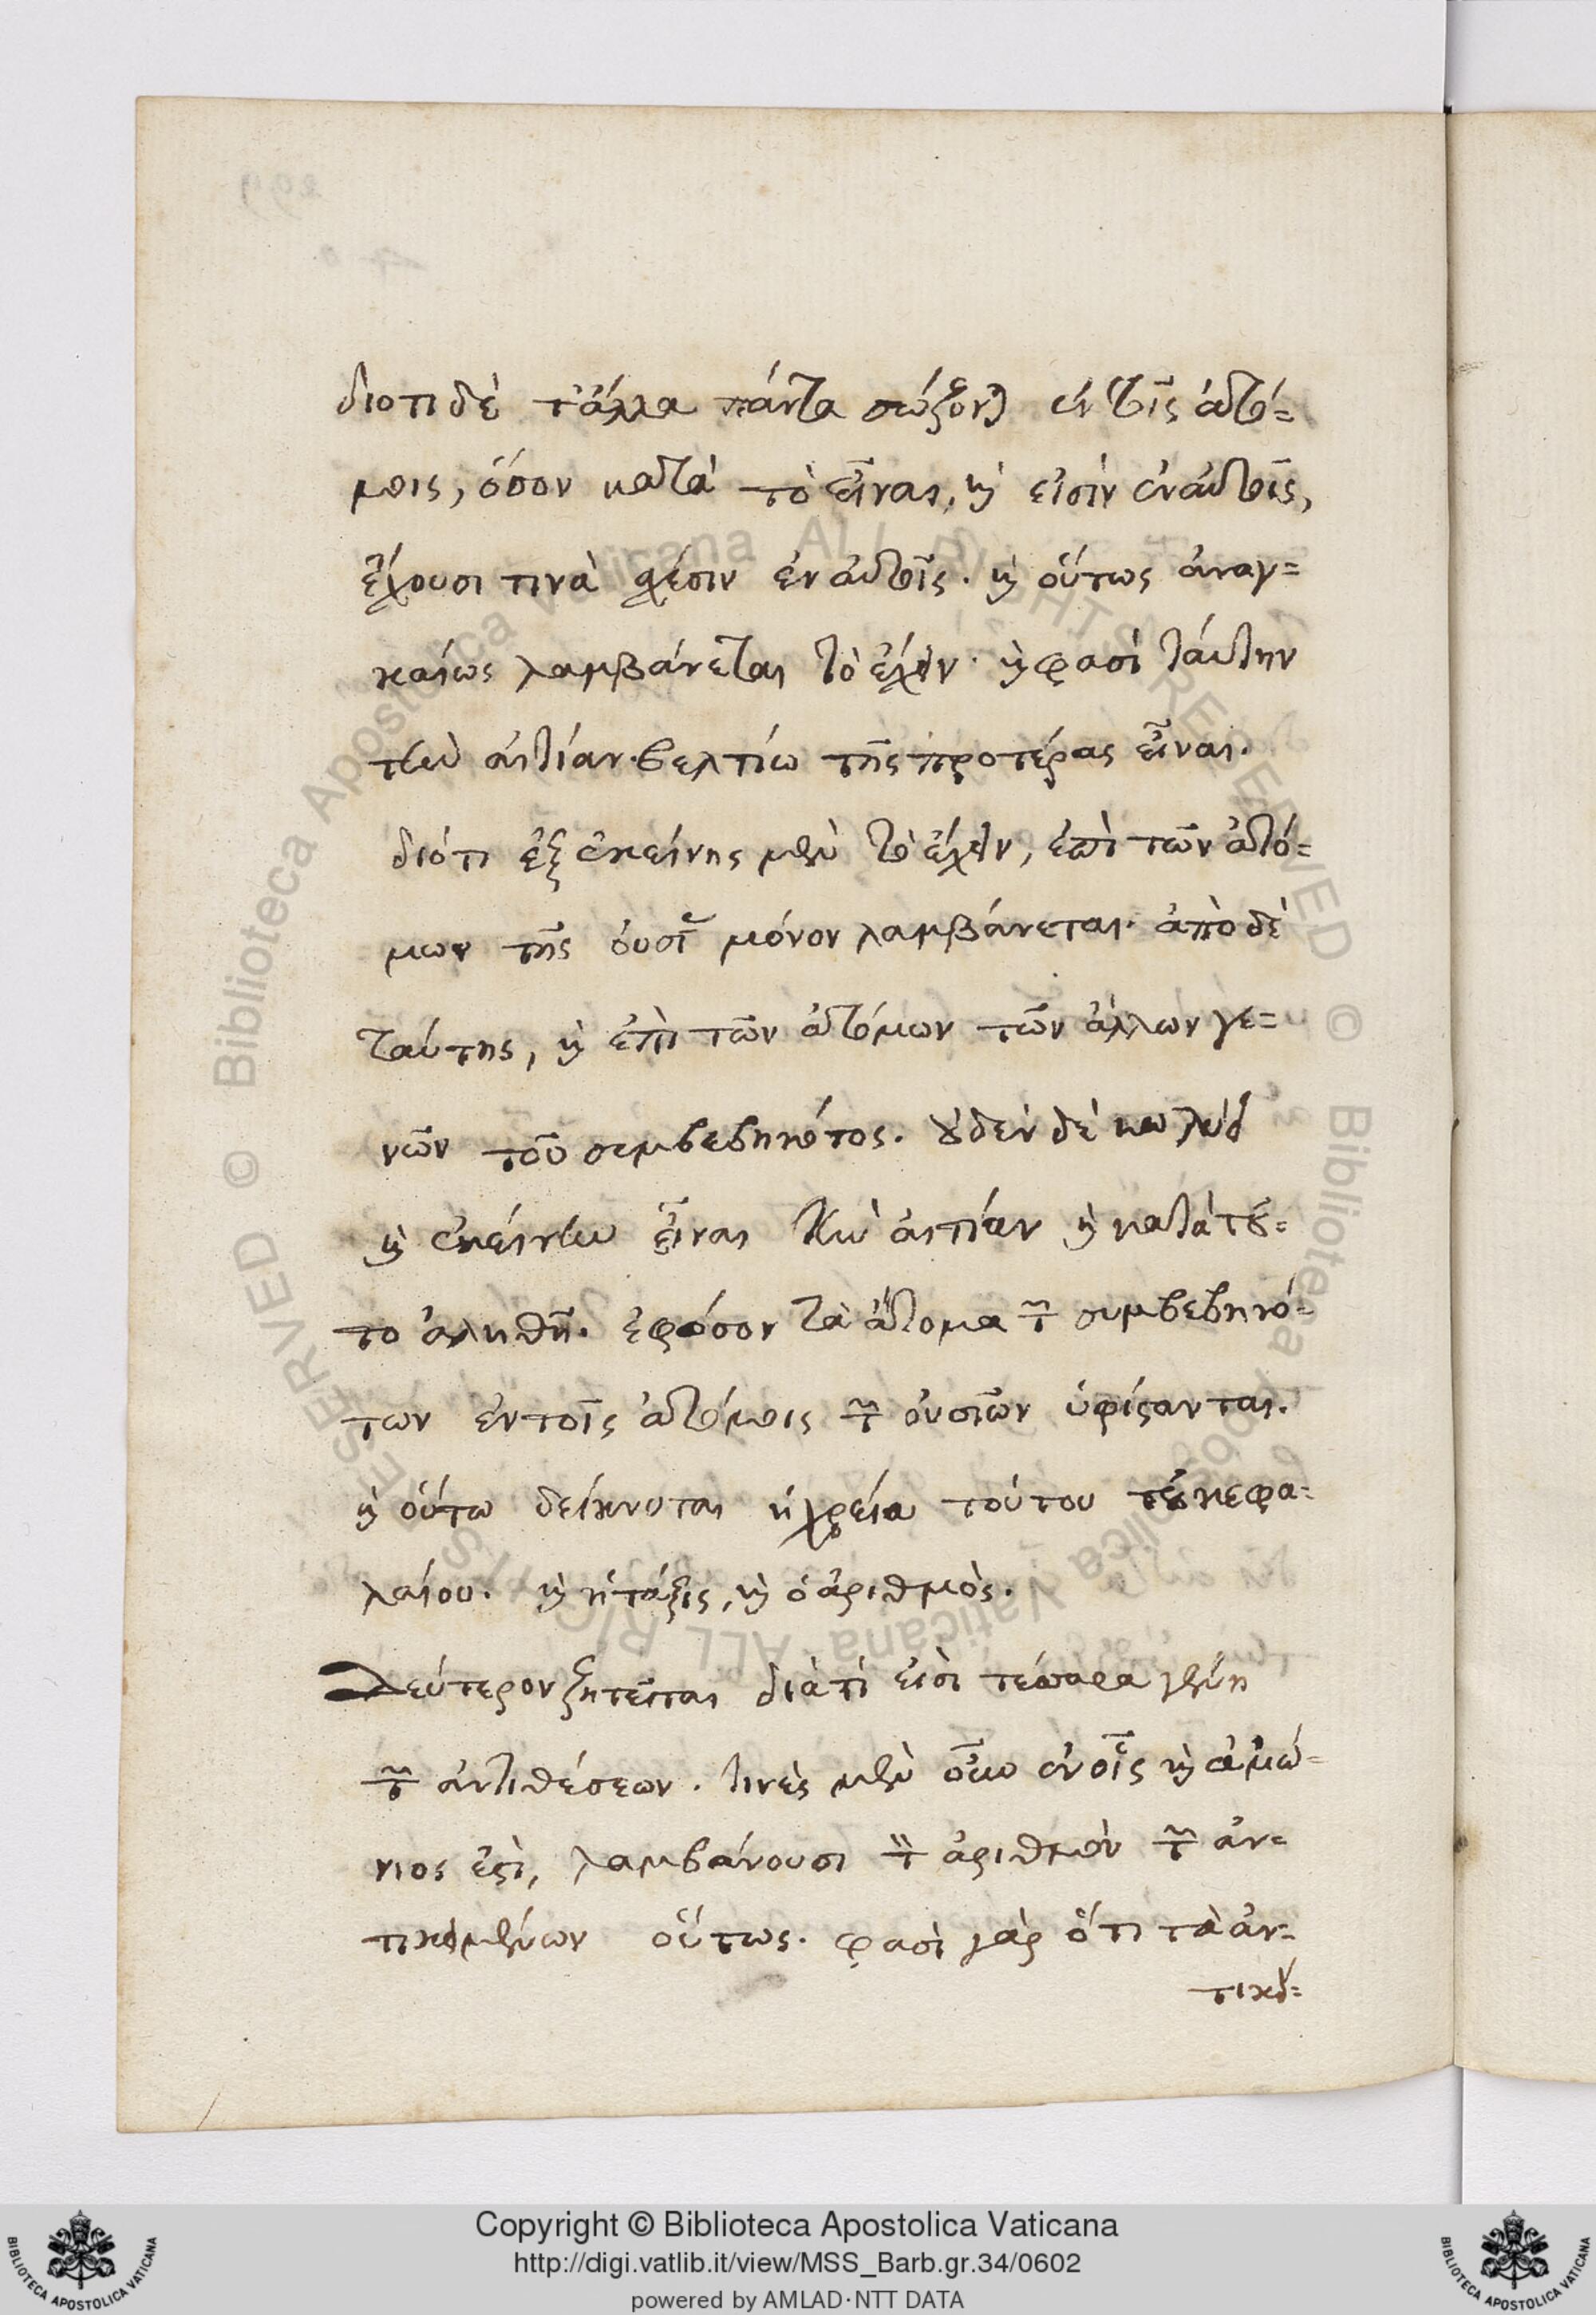 διοτι δὲ τἄλλα πάντα σώζονται ἐν τοῖς ἀτό=
μοις, ὅσον κατὰ τὸ εἶναι, καὶ εἰσὶν ἐν αὐτοῖς,
ἔχουσι τινὰ σχέσιν ἐν αὐτοῖς. καὶ οὕτως ἀναγ=
καίως λαμβάνεται τὸ ἔχειν. καὶ φασὶ ταύτην
τὴν αἰτίαν βελτίω τῆς προτέρας εἶναι.
διότι ἐξ ἐκείνης μὲν τὸ ἔχειν, ἐπὶ τῶν ἀτό=
μων τῆς οὐσίας μόνον λαμβάνεται. ἀπὸ δὲ
ταύτης, καὶ ἐπὶ τῶν ἀτόμων τῶν ἄλλων γε=
νῶν τοῦ συμβεβηκότος. οὐδὲν δὲ κωλύει
καὶ ἐκείνην εἶναι τὴν αἰτίαν καὶ κατὰ τοῦ=
το ἀληθῆ. ἐφόσον τὰ ἄτομα τῶν συμβεβηκό=
των ἐν τοῖς ἀτόμοις τῶν οὐσιῶν ὑφίστανται.
καὶ οὕτω δείκνυται ἡ χρεία τούτου τοῦ κεφα=
λαίου. καὶ ἡ τάξις, καὶ ὁ ἀριθμὸς.
Δεύτερον ζητεῖται διὰ τί εἰσὶ τέσσαρα γένη
τῶν ἀντιθέσεων. τινὲς μὲν οὖν ἐν οἷς καὶ ἀμώ=
νιος ἐστὶ, λαμβάνουσι τὸν ἀριθμὸν τῶν ἀν=
τικειμένων οὕτως. φασὶ γὰρ ὅτι τὰ ἀν=
τικεί=
Copyright © Biblioteca Apostolica Vaticana
http://digi.vatlib.it/view/MSS_Barb.gr.34/0602
powered by AMLAD·NTT DATA